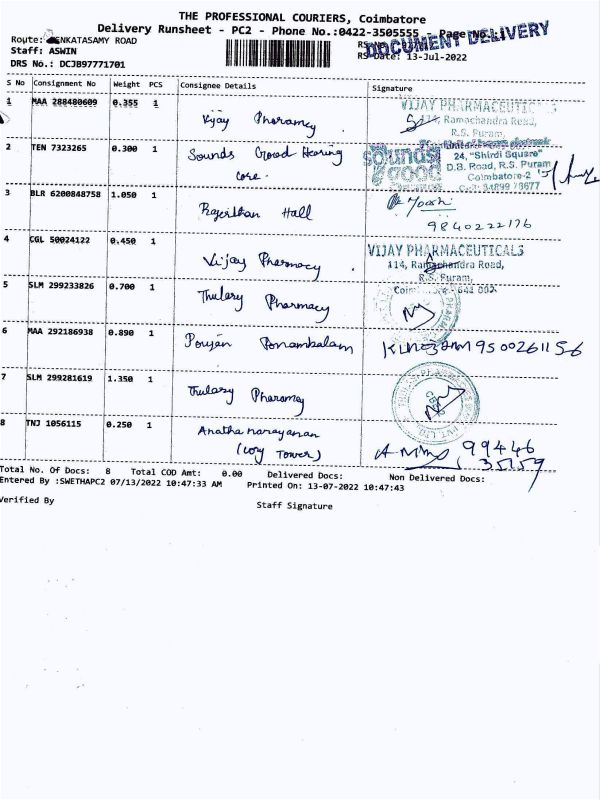 THE PROFESSIONAL COURIERS, Coimbatore
Delivery Runsheet - PC2 - Phone No.:0422-3505555 Page No.:1
DOCUMENT DELIVERY
Route: ENKATASAMY ROAD
Staff: ASWIN
RS Date: 13-Jul-2022
DRS No.: DCJB97771701
S No Consignment No Weight PCS Consignee Details Signature
1 MAA 288480609 0.355 1 Vijay Pharamcy
VIJAY PHARMACEUTIC
114, Ramachandra Road,
R.S. Puram,
2 TEN 7323265 0.300 1 Sounds Good Hearing
Core.
sounds good
24, "Shirdi Square"
D.B. Road, R.S. Puram
Coimbatore-2
3 BLR 6200848758 1.050 1 Rajasthan Hall
9840222176
4 CGL 50024122 0.450 1 Vijay Pharmocy
VIJAY PHARMACEUTICALS
114, Ramachandra Road,
R.S. Puram,
5 SLM 299233826 0.700 1 Thulasy Pharmacy
6 MAA 292186938 0.890 1 Ponambalam
9500261156
7 SLM 299281619 1.350 1 Thulasy Pharamcy
8 TNJ 1056115 0.250 1 Anatha narayanan
Tower)
99446
35159
Total No. Of Docs: 8 Total COD Amt: 0.00 Delivered Docs: Non Delivered Docs:
Entered By :SWETHAPC2 07/13/2022 10:47:33 AM Printed On: 13-07-2022 10:47:43
Verified By
Staff Signature